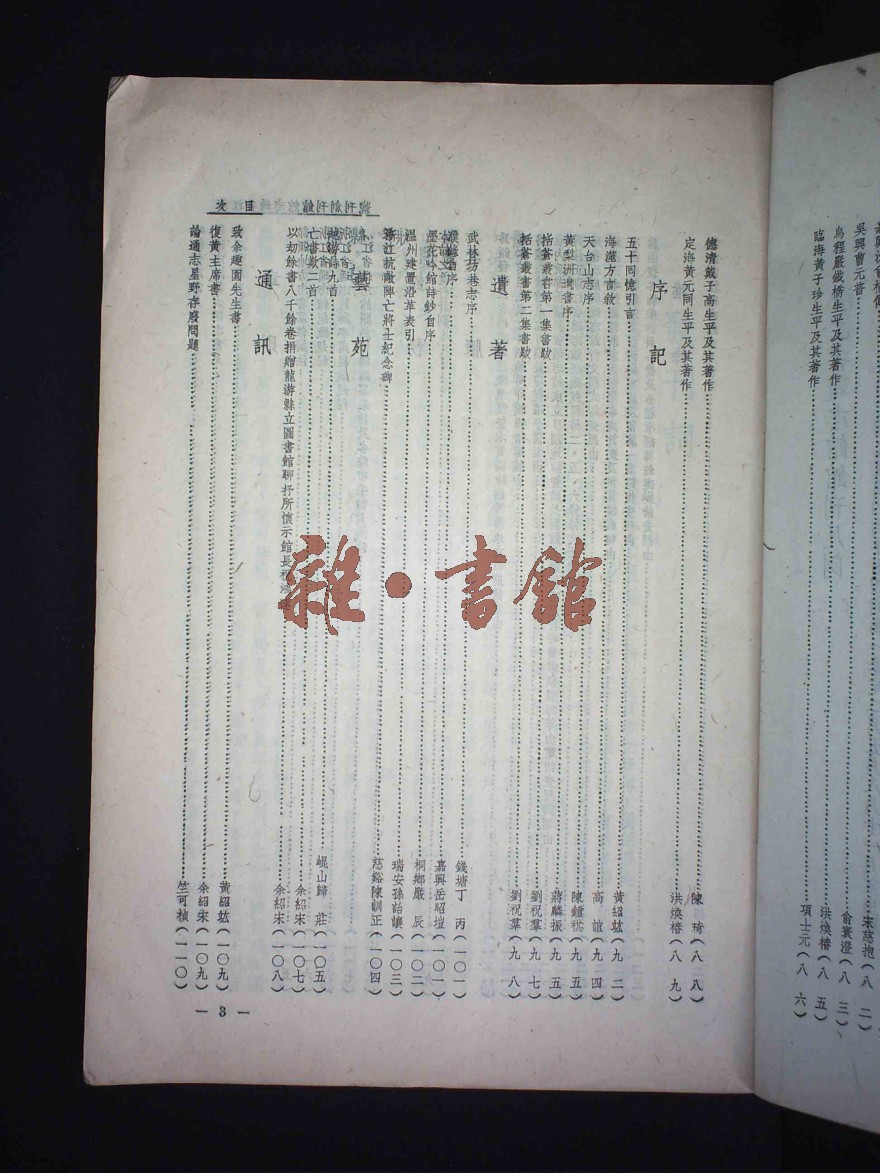 嘉興沈
宋慈抱(八二)
吳興曹元弼
俞寰澄(八三)
烏程嚴鐵橋生平及其著作
洪煥椿(八五)
臨海黃子珍生平及其著作
項士元(八六)
目次
德清戴子高生平及其著作 陳琦(八八)
定海黃元同生平及其著作 洪煥椿(八九)
序記
五十回憶引言 黃紹竑(九二)
海滬方言敘 高誼(九四)
天台山志序 陳鐘祺(九五)
黃梨洲遺書序 蔣麟振(九五)
括蒼叢書第一集書跋 劉祝羣(九七)
括蒼叢書第二集書跋 劉祝羣(九八)
遺著
武林坊巷志序 錢塘丁丙(一〇一)
自序 嘉興岳昭塏(一〇一)
墨花吟館詩鈔自序 桐鄉嚴辰(一〇二)
溫州建置沿革表引 瑞安孫詒讓(一〇三)
浙江抗敵陣亡將士紀念碑 慈谿陳訓正(一〇四)
藝苑
九首 崐山歸莊(一〇五)
亡書歎二首 余紹宋(一〇七)
以刼餘書八千餘卷捐贈龍游縣立圖書館聊抒所懷示館長 余紹宋(一〇八)
通訊
致余越園先生書 黃紹竑(一〇九)
復黃主席書 余紹宋(一〇九)
論通志星野存廢問題 竺可楨(一一〇)
— 3 —
雜·書館